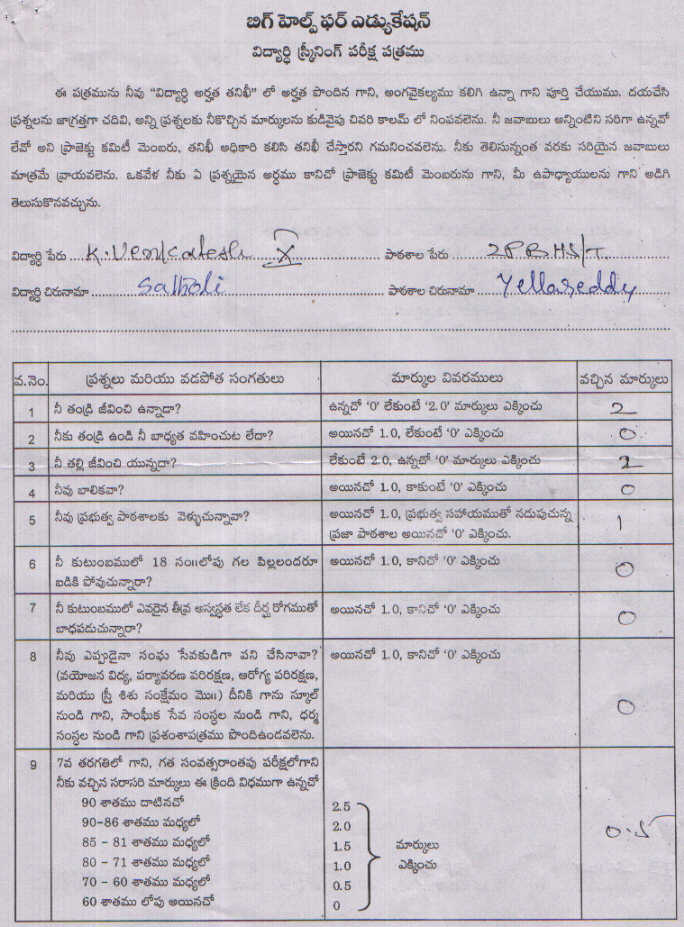 బిగ్ హెల్ప్ ఫర్ ఎడ్యుకేషన్
విద్యార్ధి స్క్రీనింగ్ పరీక్ష పత్రము
ఈ పత్రమును నీవు "విద్యార్ధి అర్హత తనిఖీ" లో అర్హత పొందిన గాని, అంగవైకల్యము కలిగి ఉన్నా గాని పూర్తి చేయుము. దయచేసి
ప్రశ్నలను జాగ్రత్తగా చదివి, అన్ని ప్రశ్నలకు నీకొచ్చిన మార్కులను కుడివైపు చివరి కాలమ్ లో నింపవలెను. నీ జవాబులు అన్నింటిని సరిగా ఉన్నవో
లేవో అని ప్రాజెక్టు కమిటీ మెంబరు, తనిఖీ అధికారి కలిసి తనిఖీ చేస్తారని గమనించవలెను. నీకు తెలిసున్నంత వరకు సరియైన జవాబులు
మాత్రమే వ్రాయవలెను. ఒకవేళ నీకు ఏ ప్రశ్నయైన అర్ధము కానిచో ప్రాజెక్టు కమిటీ మెంబరును గాని, మీ ఉపాధ్యాయులను గాని అడిగి
తెలుసుకొనవచ్చును.
విద్యార్ధి పేరు K. Venkatesh X పాఠశాల పేరు ZPBHS/T
విద్యార్ధి చిరునామా పాఠశాల చిరునామా Yellareddy
వ.నెం. ప్రశ్నలు మరియు వడపోత సంగతులు మార్కుల వివరములు వచ్చిన మార్కులు
1 నీ తండ్రి జీవించి ఉన్నాడా? ఉన్నచో '0' లేకుంటే '2.0' మార్కులు ఎక్కించు 2
2 నీకు తండ్రి ఉండి నీ బాధ్యత వహించుట లేదా? అయినచో 1.0, లేకుంటే '0' ఎక్కించు 0
3 నీ తల్లి జీవించి యున్నదా? లేకుంటే 2.0, ఉన్నచో '0' మార్కులు ఎక్కించు 2
4 నీవు బాలికవా? అయినచో 1.0, కాకుంటే '0' ఎక్కించు 0
5 నీవు ప్రభుత్వ పాఠశాలకు వెళ్ళుచున్నావా? అయినచో 1.0, ప్రభుత్వ సహాయముతో నడుపుచున్న 1
ప్రజా పాఠశాల అయినచో '0' ఎక్కించు.
6 నీ కుటుంబములో 18 సం॥లోపు గల పిల్లలందరూ అయినచో 1.0, కానిచో '0' ఎక్కించు 0
బడికి పోవుచున్నారా?
7 నీ కుటుంబములో ఎవరైన తీవ్ర అస్వస్థత లేక దీర్ఘ రోగముతో అయినచో 1.0, కానిచో '0' ఎక్కించు 0
బాధపడుచున్నారా?
8 నీవు ఎప్పుడైనా సంఘ సేవకుడిగా పని చేసినావా? అయినచో 1.0, కానిచో '0' ఎక్కించు 0
(వయోజన విద్య, పర్యావరణ పరిరక్షణ, ఆరోగ్య పరిరక్షణ,
మరియు స్త్రీ శిశు సంక్షేమం మొ॥) దీనికి గాను స్కూల్
నుండి గాని, సాంఘీక సేవ సంస్థల నుండి గాని, ధర్మ
సంస్థల నుండి గాని ప్రశంశాపత్రము పొందిఉండవలెను.
9 7వ తరగతిలో గాని, గత సంవత్సరాంతపు పరీక్షలోగాని
నీకు వచ్చిన సరాసరి మార్కులు ఈ క్రింది విధముగా ఉన్నచో
90 శాతము దాటినచో 2.5
90-86 శాతము మధ్యలో 2.0 0.5
85 - 81 శాతము మధ్యలో 1.5 మార్కులు
80 - 71 శాతము మధ్యలో 1.0 ఎక్కించు
70 - 60 శాతము మధ్యలో 0.5
60 శాతము లోపు అయినచో 0